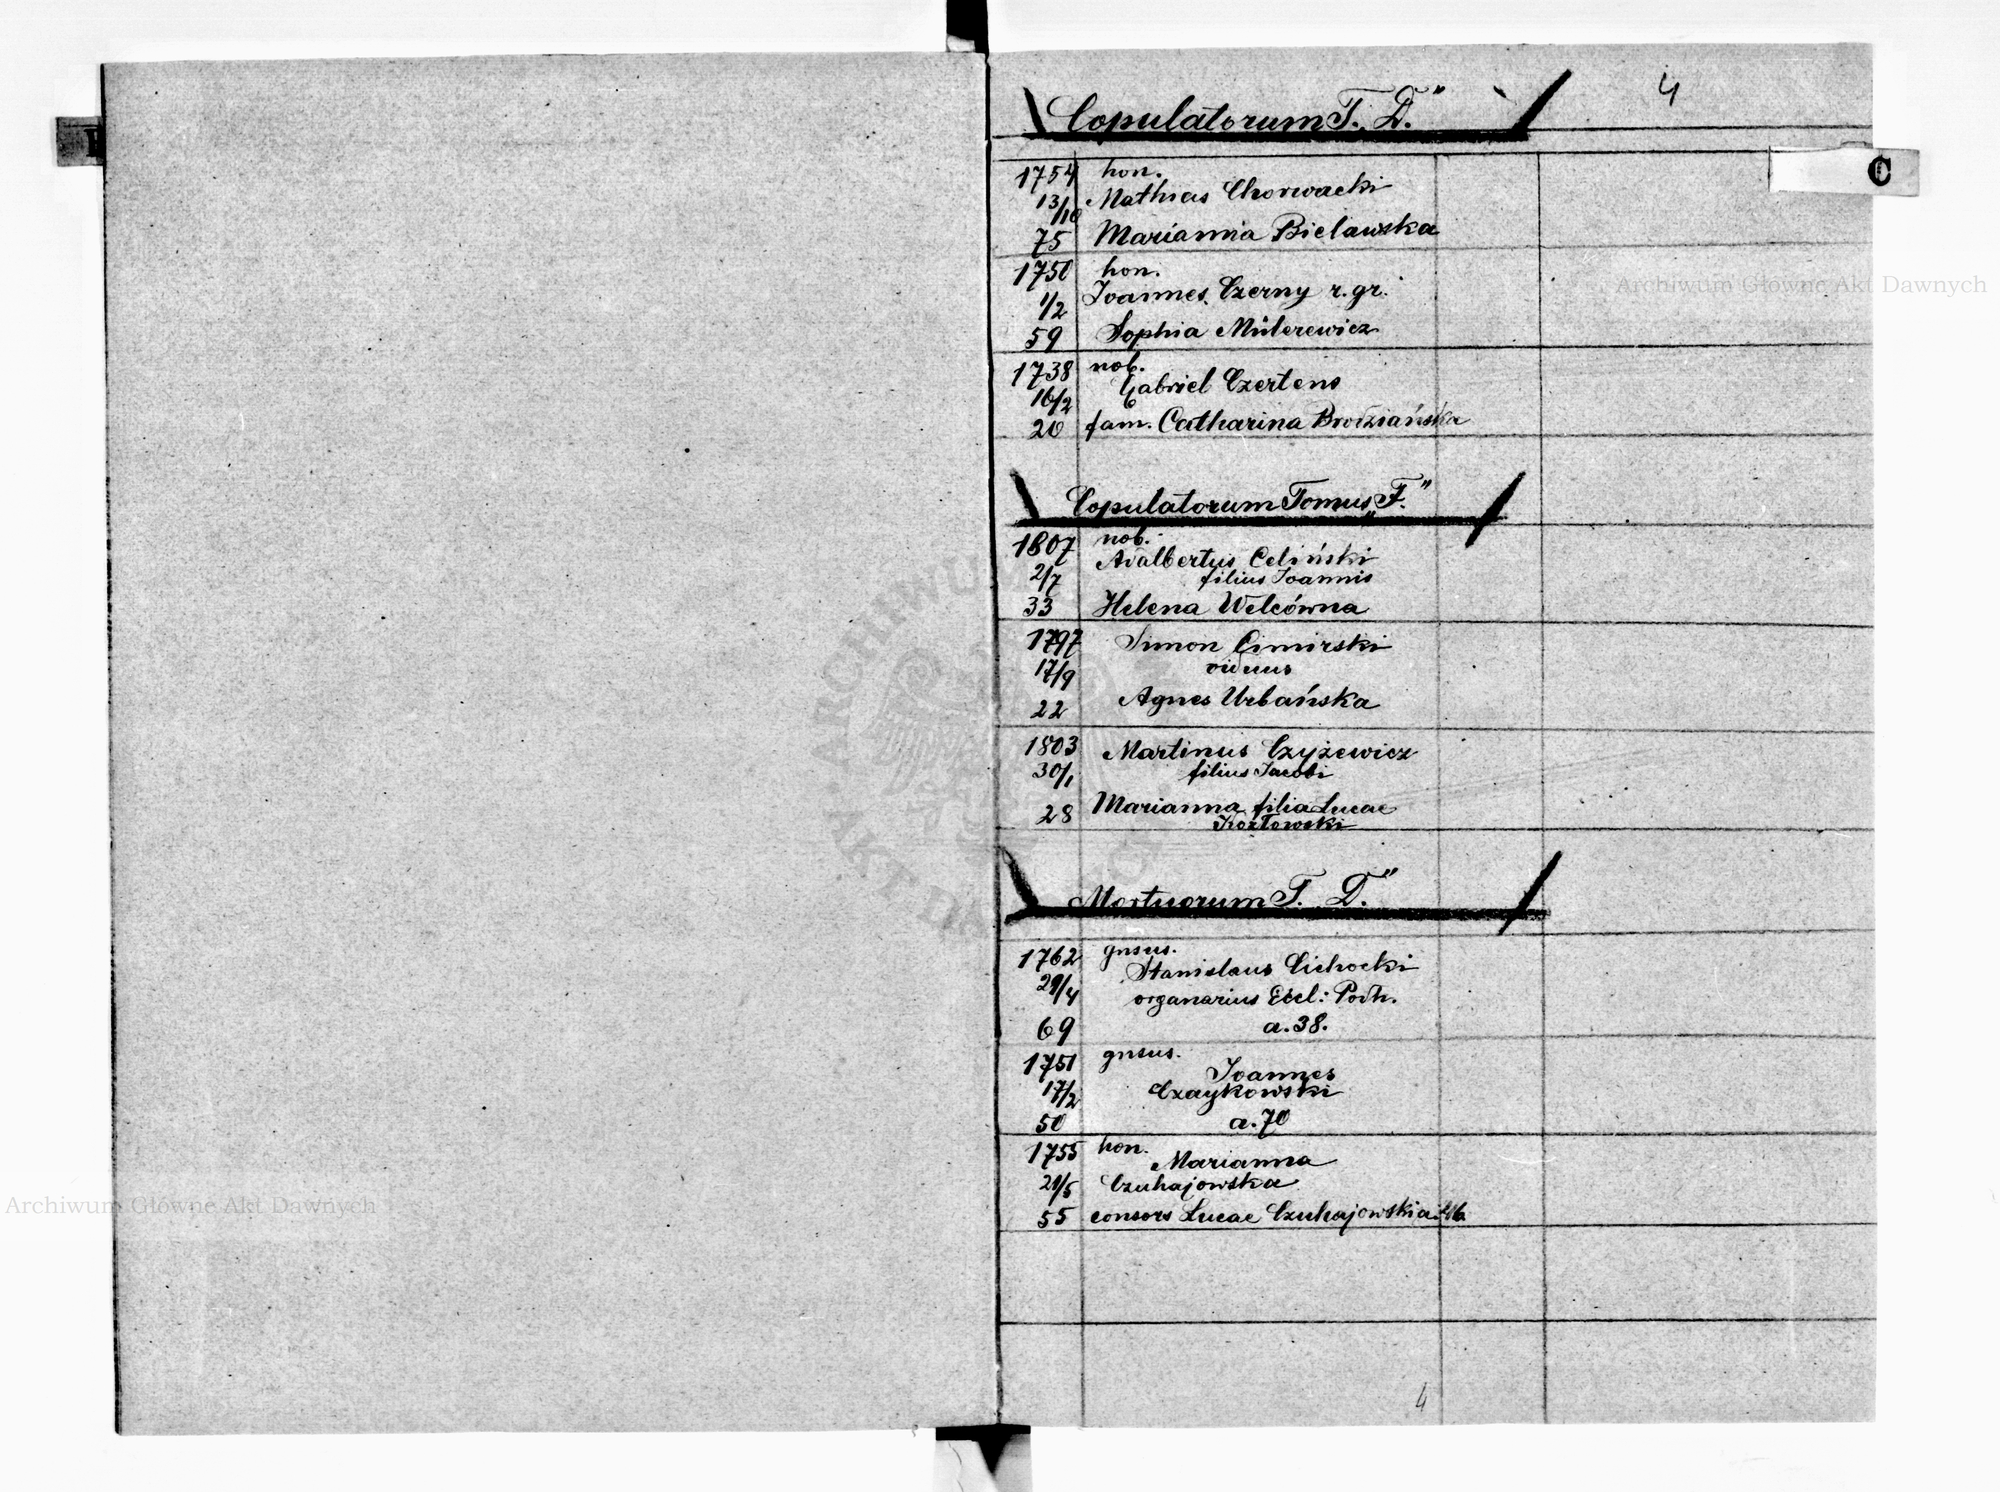 4
Copulatorum T. D."
C
1754 hon.
13/10 Mathias Chorwacki
75 Marianna Bielawska
1750 hon.
1/2 Joannes Czerny r. gr.
59 Sophia Milerewicz
1738 nob.
16/2 Gabriel Czertens
20 fam. Catharina Brodziańska
Copulatorum Tomus „F."
1807 nob.
2/7 Adalbertus Celiński
filius Joannis
33 Helena Welcówna
1797 Simon Cimirski
17/9 viduus
22 Agnes Urbańska
1803 Martinus Czyżewicz
30/1 filius Jacobi
28 Marianna filia Lucae
Kozłowski
Mortuorum T. D."
1762 gnsus.
29/4 Stanislaus Cichocki
organarius Eccl: Podh.
69 a. 38.
1751 gnsus.
Joannes
17/2 Czaykowski
50 a. 70
1755 hon.
Marianna
21/5 Czuhajowska
55 consors Lucae Czuhajowski a. 46
4
Archiwum Główne Akt Dawnych
Archiwum Główne Akt Dawnych